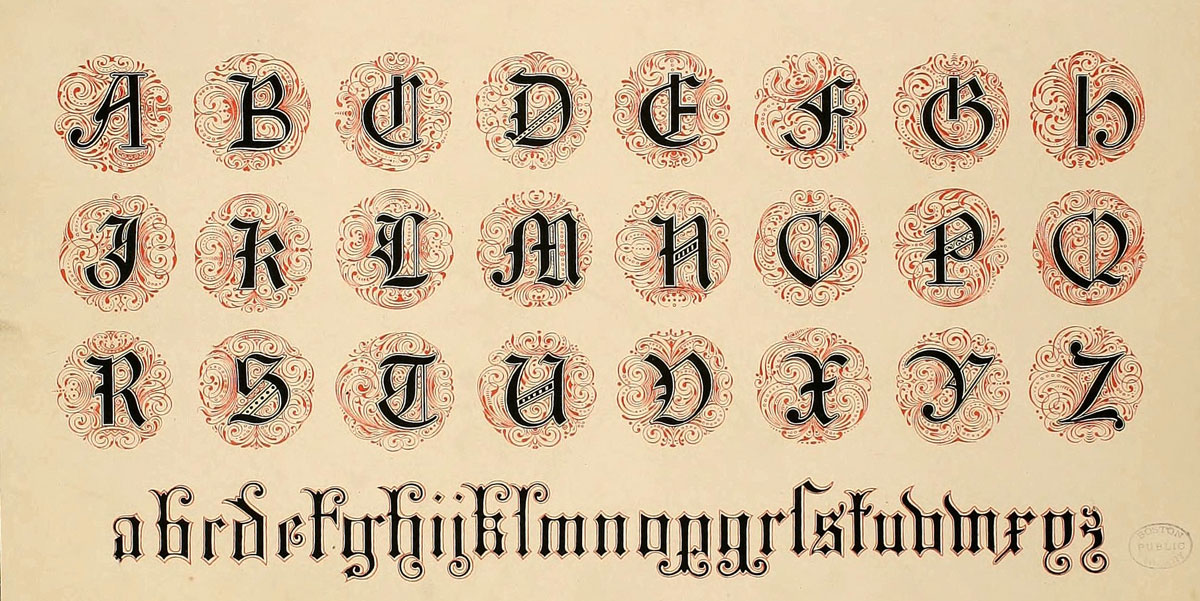 A B C D E F G H
I K L M N O P Q
R S T U V X Y Z
abcdefghijklmnopqrſstuvwxyz
BOSTON
PUBLIC